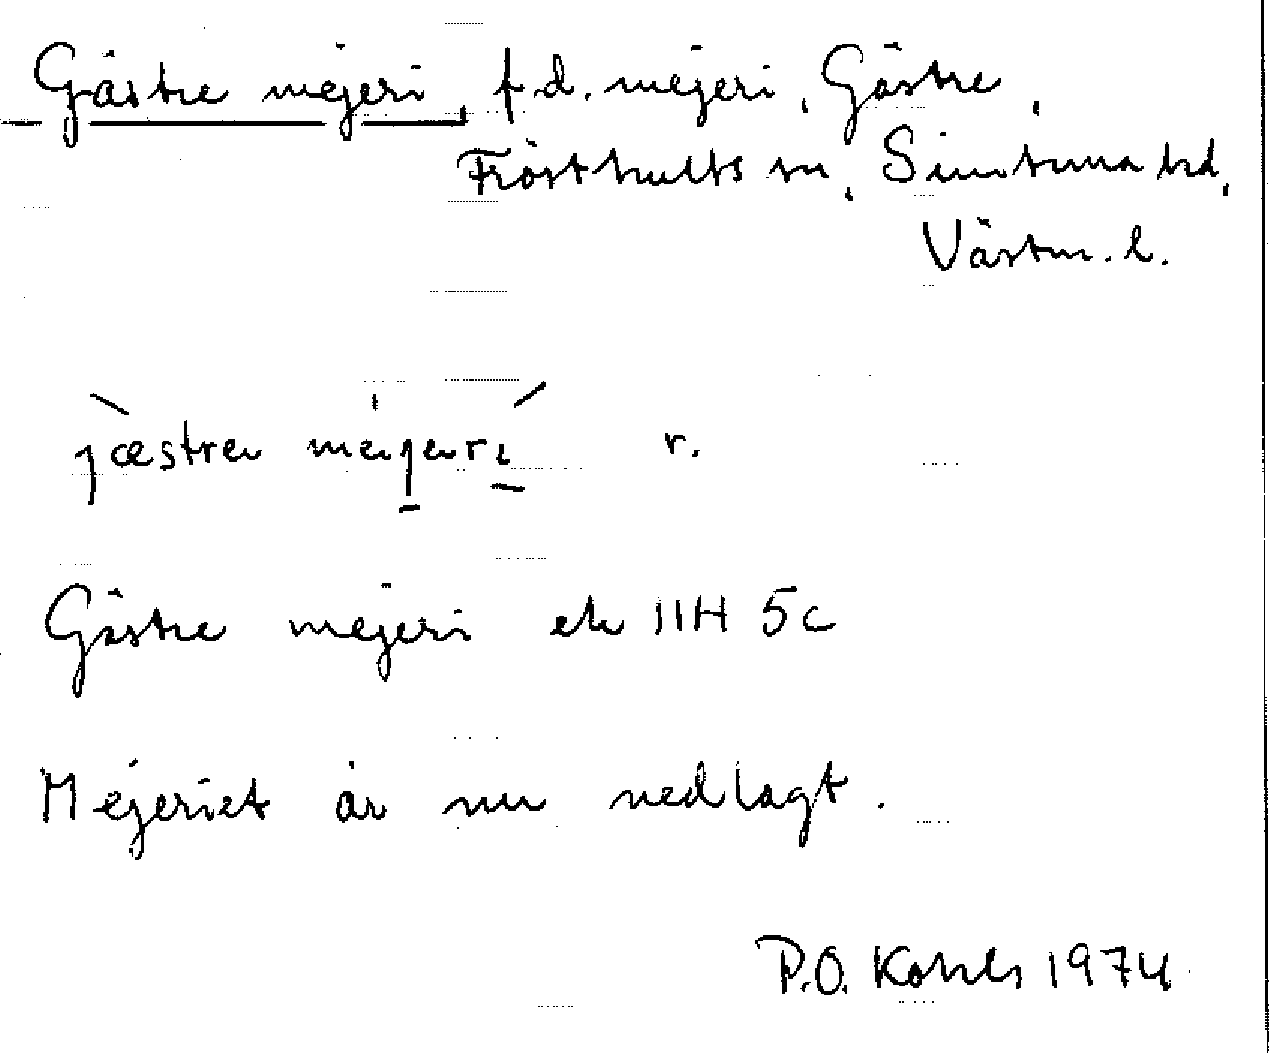 Gästre mejeri, f.d. mejeri, Gästre,
Frösthults sn, Simtuna hd,
Västm. l.
jæstre mejeri r.
Gästre mejeri ek 11H 5c
Mejeriet är nu nedlagt.
P.O. 1974